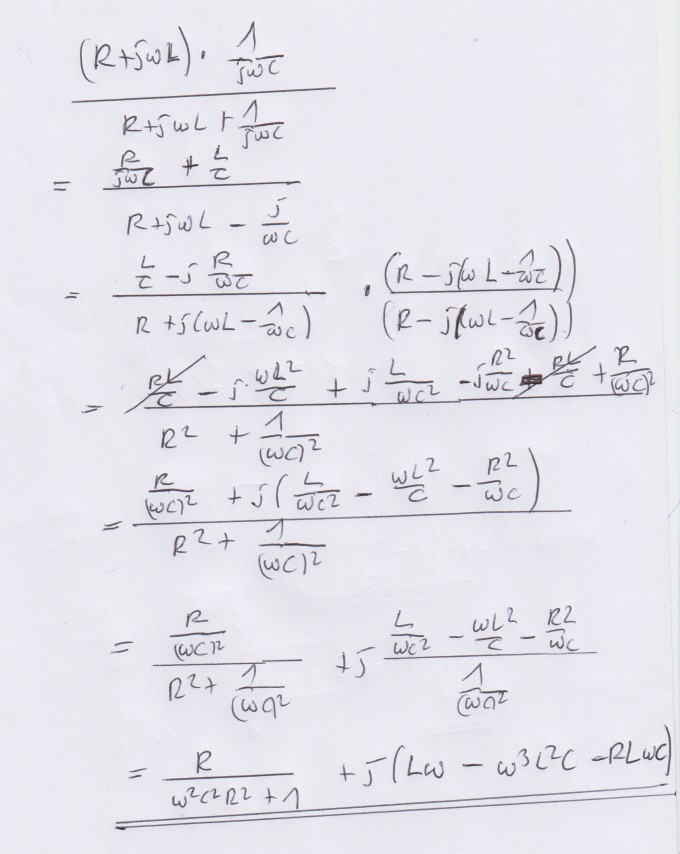 (R+jωL) · 1/(jωC)
R+jωL + 1/(jωC)
= R/(jωC) + L/C
R+jωL − j/(ωC)
= L/C − j R/(ωC) · (R − j(ωL − 1/(ωC)))
R + j(ωL − 1/(ωC)) (R − j(ωL − 1/(ωC)))
= RL/C − j ωL²/C + j L/(ωC²) − j R²/(ωC) − RL/C + R/(ωC)²
R² + 1/(ωC)²
= R/(ωC)² + j(L/(ωC²) − ωL²/C − R²/(ωC))
R² + 1/(ωC)²
= R/(ωC)² + j L/(ωC²) − ωL²/C − R²/(ωC)
R² + 1/(ωC)² 1/(ωC)²
= R + j(Lω − ω³L²C − RLωC)
ω²C²R² + 1